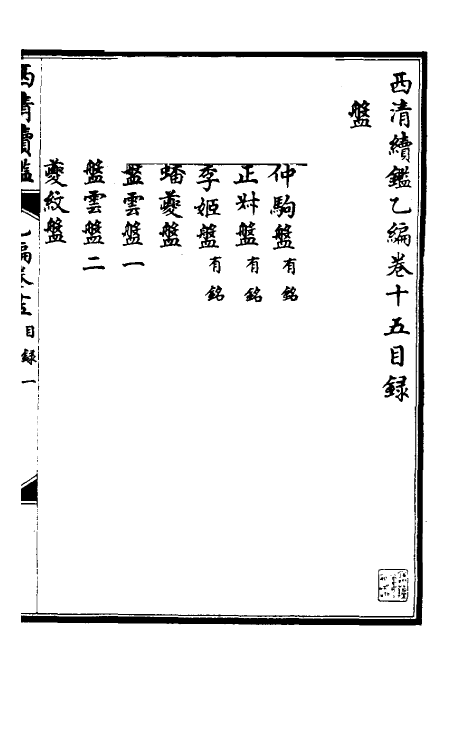 西清續鑑乙編卷十五目録
盤
仲駒盤有銘
正𣂏盤有銘
季姬盤有銘
蟠夔盤
盤雲盤一
盤雲盤二
夔紋盤
西清續鑑 乙編卷十五目録 一